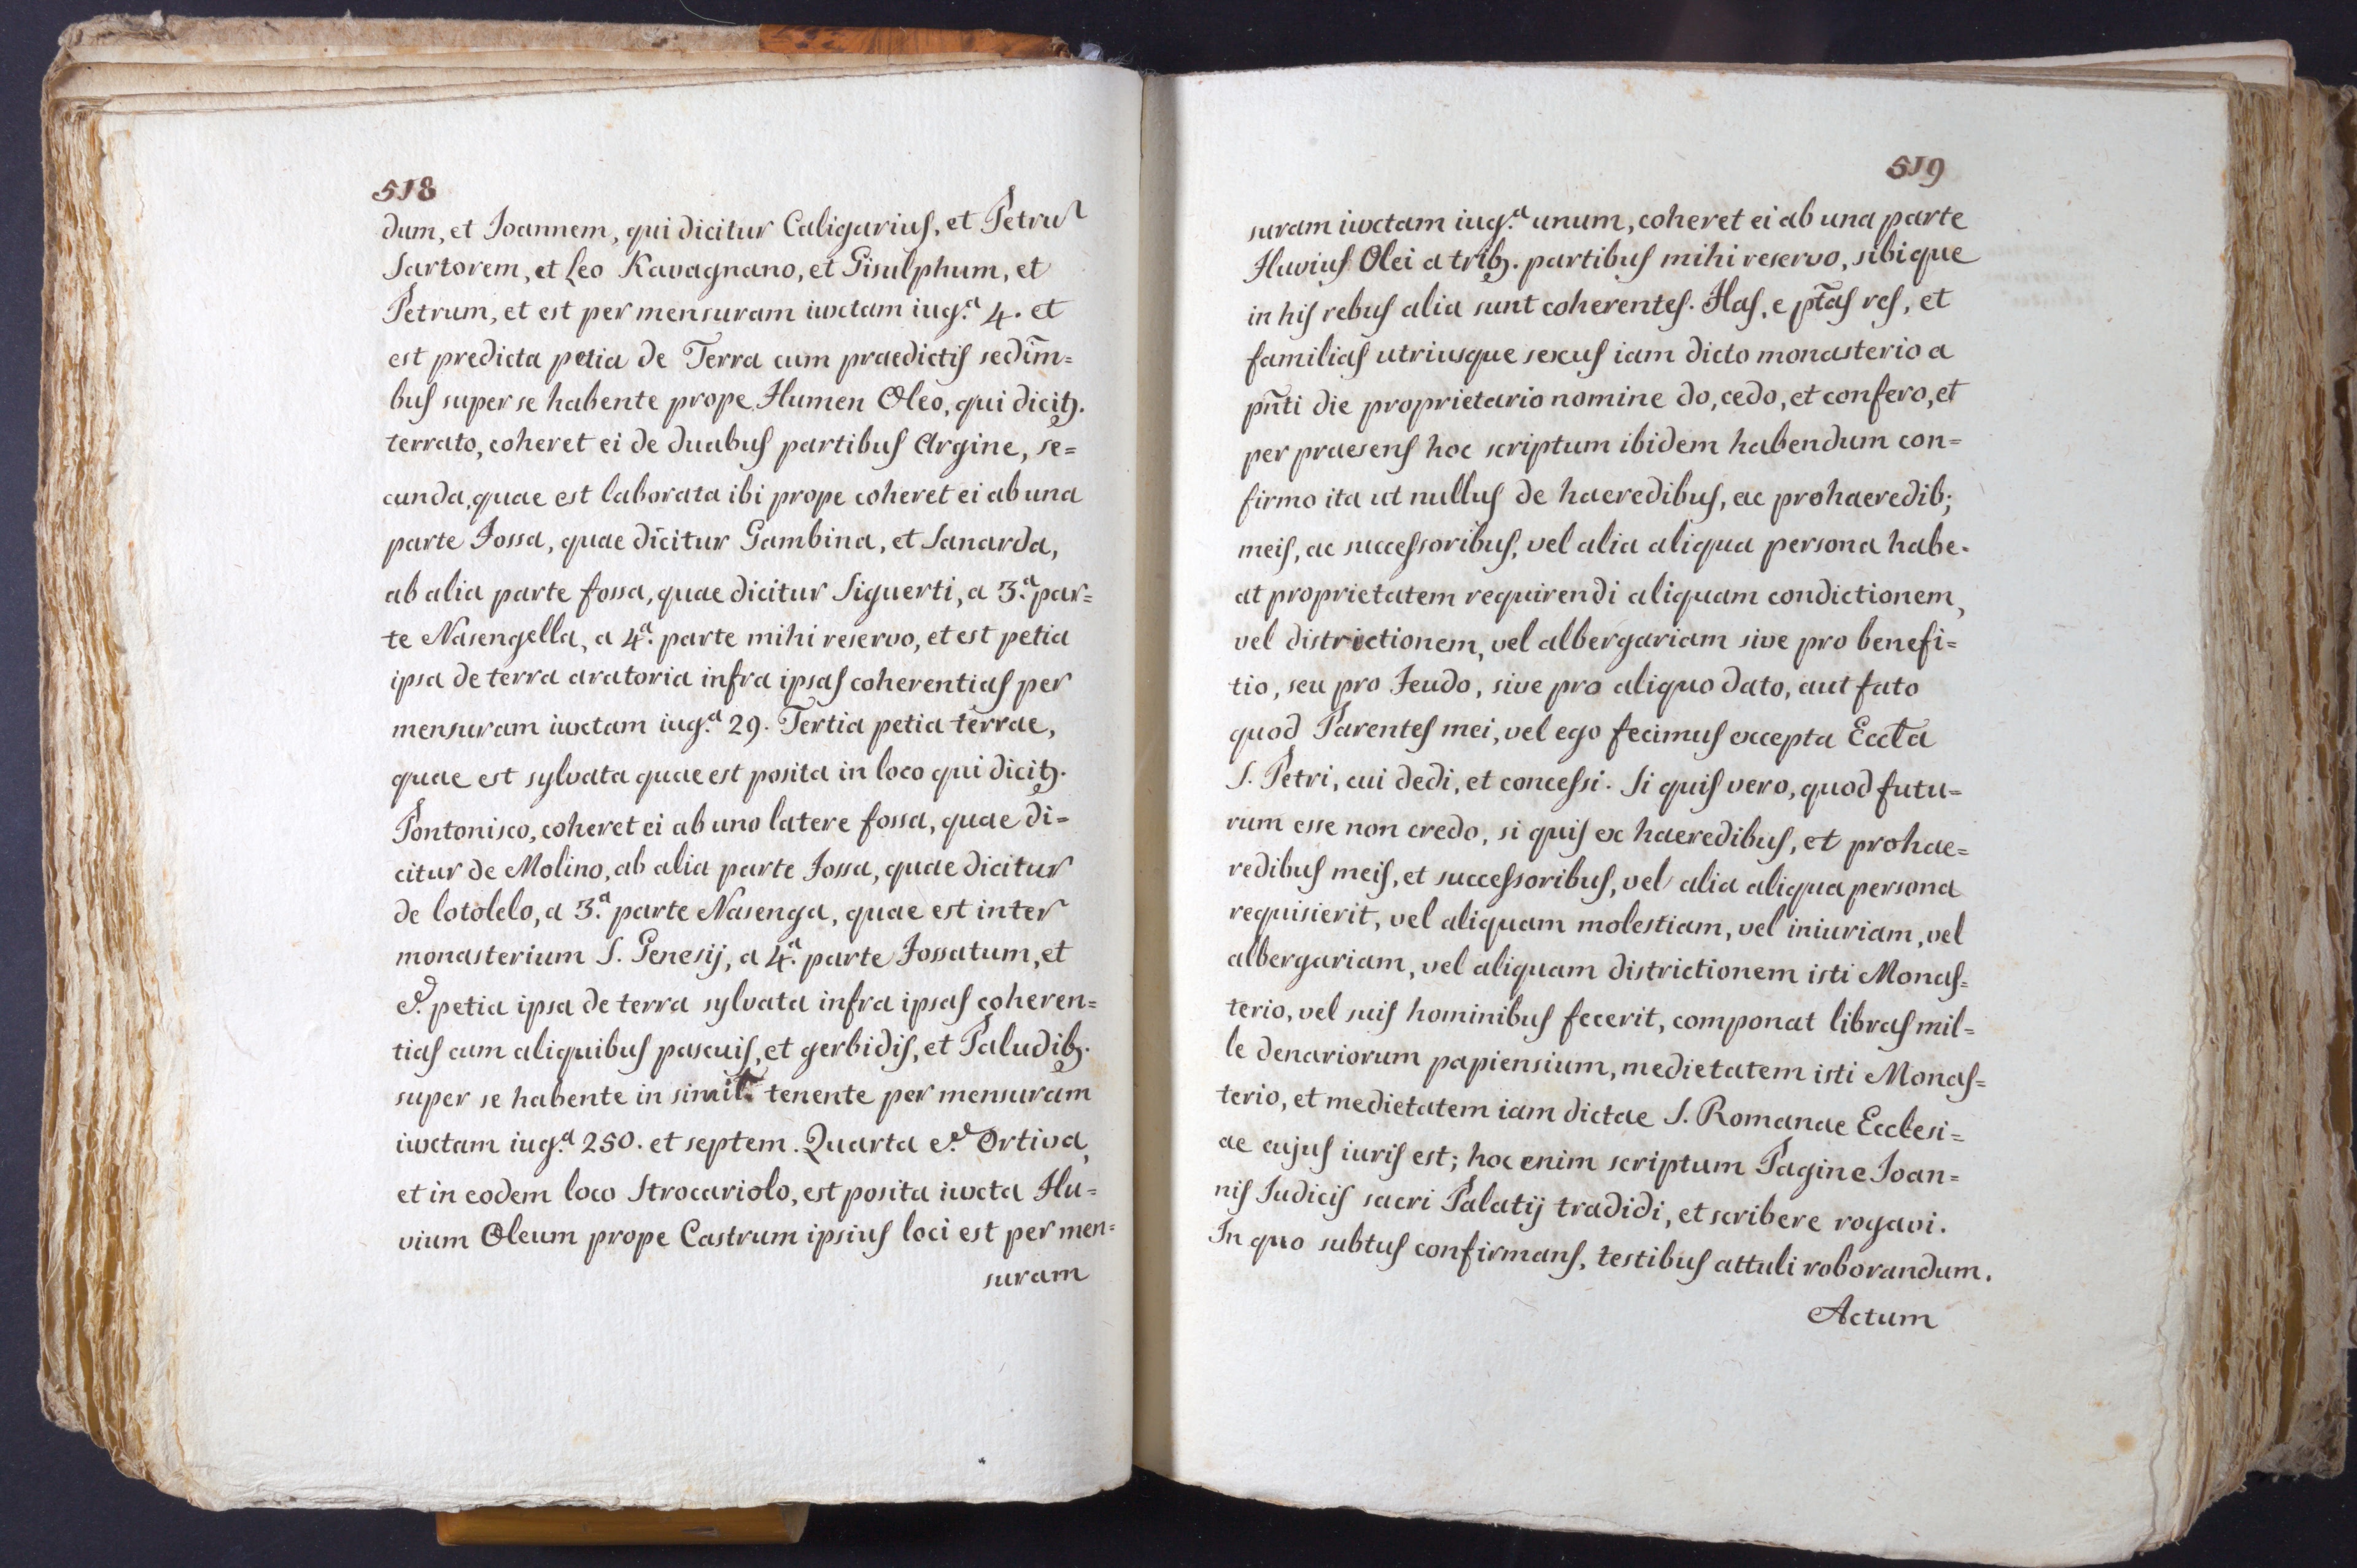 518
dum, et Joannem, qui dicitur Caligarius, et Petru
Sartorem, et Leo Kavagnano, et Gisulphum, et
Petrum, et est per mensuram iuxtam iug.ª 4. et
est predicta petia de Terra cum praedictis sedim̄=
bus super se habente prope Flumen Oleo, qui dicitꝫ.
terrato, coheret ei de duabus partibus Argine, se=
cunda, quae est laborata ibi prope coheret ei ab una
parte Fossa, quae dicitur Gambina, et Sanarda,
ab alia parte fossa, quae dicitur Siguerti, a 3.ª par=
te Nasengella, a 4.ª parte mihi reservo, et est petia
ipsa de terra aratoria infra ipsas coherentias per
mensuram iuxtam iug.ª 29. Tertia petia terrae,
quae est sylvata quae est posita in loco qui dicitꝫ.
Pontonisco, coheret ei ab uno latere fossa, quae di=
citur de Molino, ab alia parte Fossa, quae dicitur
de lotolelo, a 3.ª parte Nasenga, quae est inter
monasterium S. Genesij, a 4.ª parte Fossatum, et
e.ᵈ petia ipsa de terra sylvata infra ipsas coheren=
tias cum aliquibus pascuis, et gerbidis, et Paludibꝫ.
super se habente in simil. tenente per mensuram
iuxtam iug.ª 250. et septem. Quarta e.ᵈ Ortiva,
et in eodem loco Strocariolo, est posita iuxta Flu=
vium Oleum prope Castrum ipsius loci est per men=
suram
519
suram iuxtam iug.ª unum, coheret ei ab una parte
Fluvius Olei a tribꝫ. partibus mihi reservo, sibique
in his rebus alia sunt coherentes. Has, e p̄tas res, et
familias utriusque sexus iam dicto monasterio a
pn̄ti die proprietario nomine do, cedo, et confero, et
per praesens hoc scriptum ibidem habendum con=
firmo ita ut nullus de haeredibus, ac prohaeredib;
meis, ac successoribus, vel alia aliqua persona habe-
at proprietatem requirendi aliquam condictionem,
vel districtionem, vel albergariam sive pro benefi=
tio, seu pro Feudo, sive pro aliquo dato, aut fato
quod Parentes mei, vel ego fecimus excepta Eccƚa
S. Petri, cui dedi, et concessi. Si quis vero, quod futu=
rum esse non credo, si quis ex haeredibus, et prohae=
redibus meis, et successoribus, vel alia aliqua persona
requisierit, vel aliquam molestiam, vel iniuriam, vel
albergariam, vel aliquam districtionem isti Monas=
terio, vel suis hominibus fecerit, componat libras mil=
le denariorum papiensium, medietatem isti Monas=
terio, et medietatem iam dictae S. Romanae Ecclesi=
ae cujus iuris est; hoc enim scriptum Pagine Joan=
nis Judicis sacri Palatij tradidi, et scribere rogavi.
In quo subtus confirmans, testibus attuli roborandum.
Actum